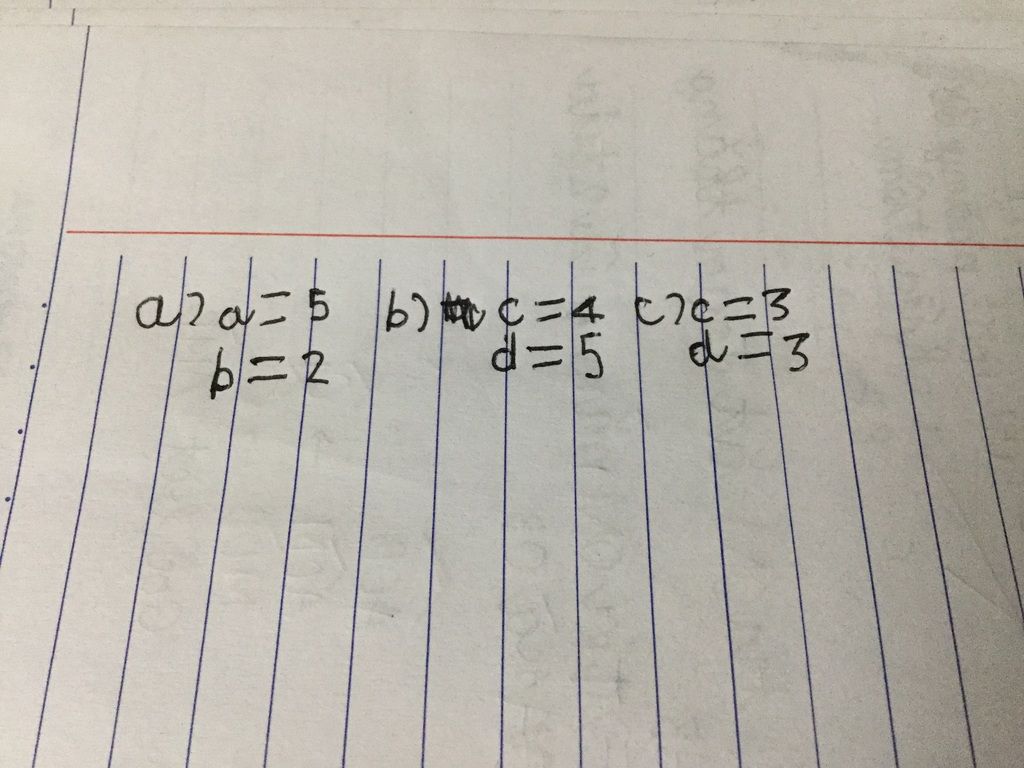 a) a = 5 b) c = 4 c) c = 3
b = 2 d = 5 d = 3